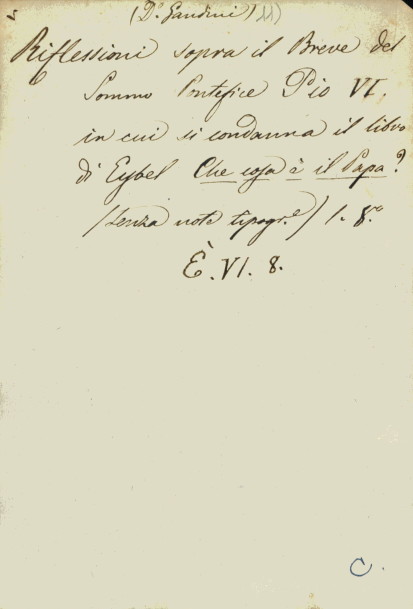 (D. Gandini) 11)
Riflessioni sopra il Breve del
Sommo Pontefice Pio VI.
in cui si condanna il libro
di Eybel Che cosa è il Papa?
/senza note tipogr.e/ 1. 8.o
È. VI. 8.
C.